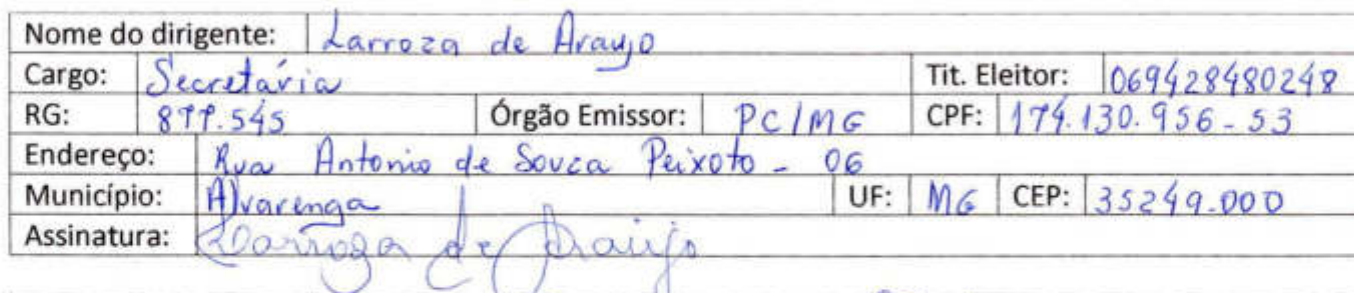 Nome do dirigente: Larroza de Araujo
Cargo: Secretária Tit. Eleitor: 069428480248
RG: 877.545 Órgão Emissor: PC/MG CPF: 174.130.956-53
Endereço: Rua Antonio de Souza Peixoto - 06
Município: Alvarenga UF: MG CEP: 35249.000
Assinatura: Larroza de Araujo